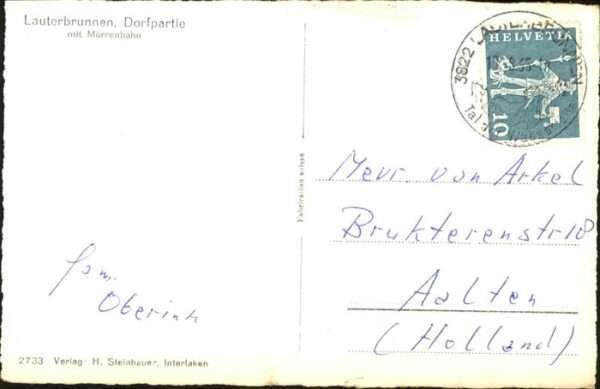 Lauterbrunnen, Dorfpartie
mit Mürrenbahn
3822
HELVETIA
10
Fabrication suisse
Mevr. van Arkel
Brukterenstr 18
Aalten
(Holland)
fam.
Oberink
2733 Verlag H. Steinhauer, Interlaken